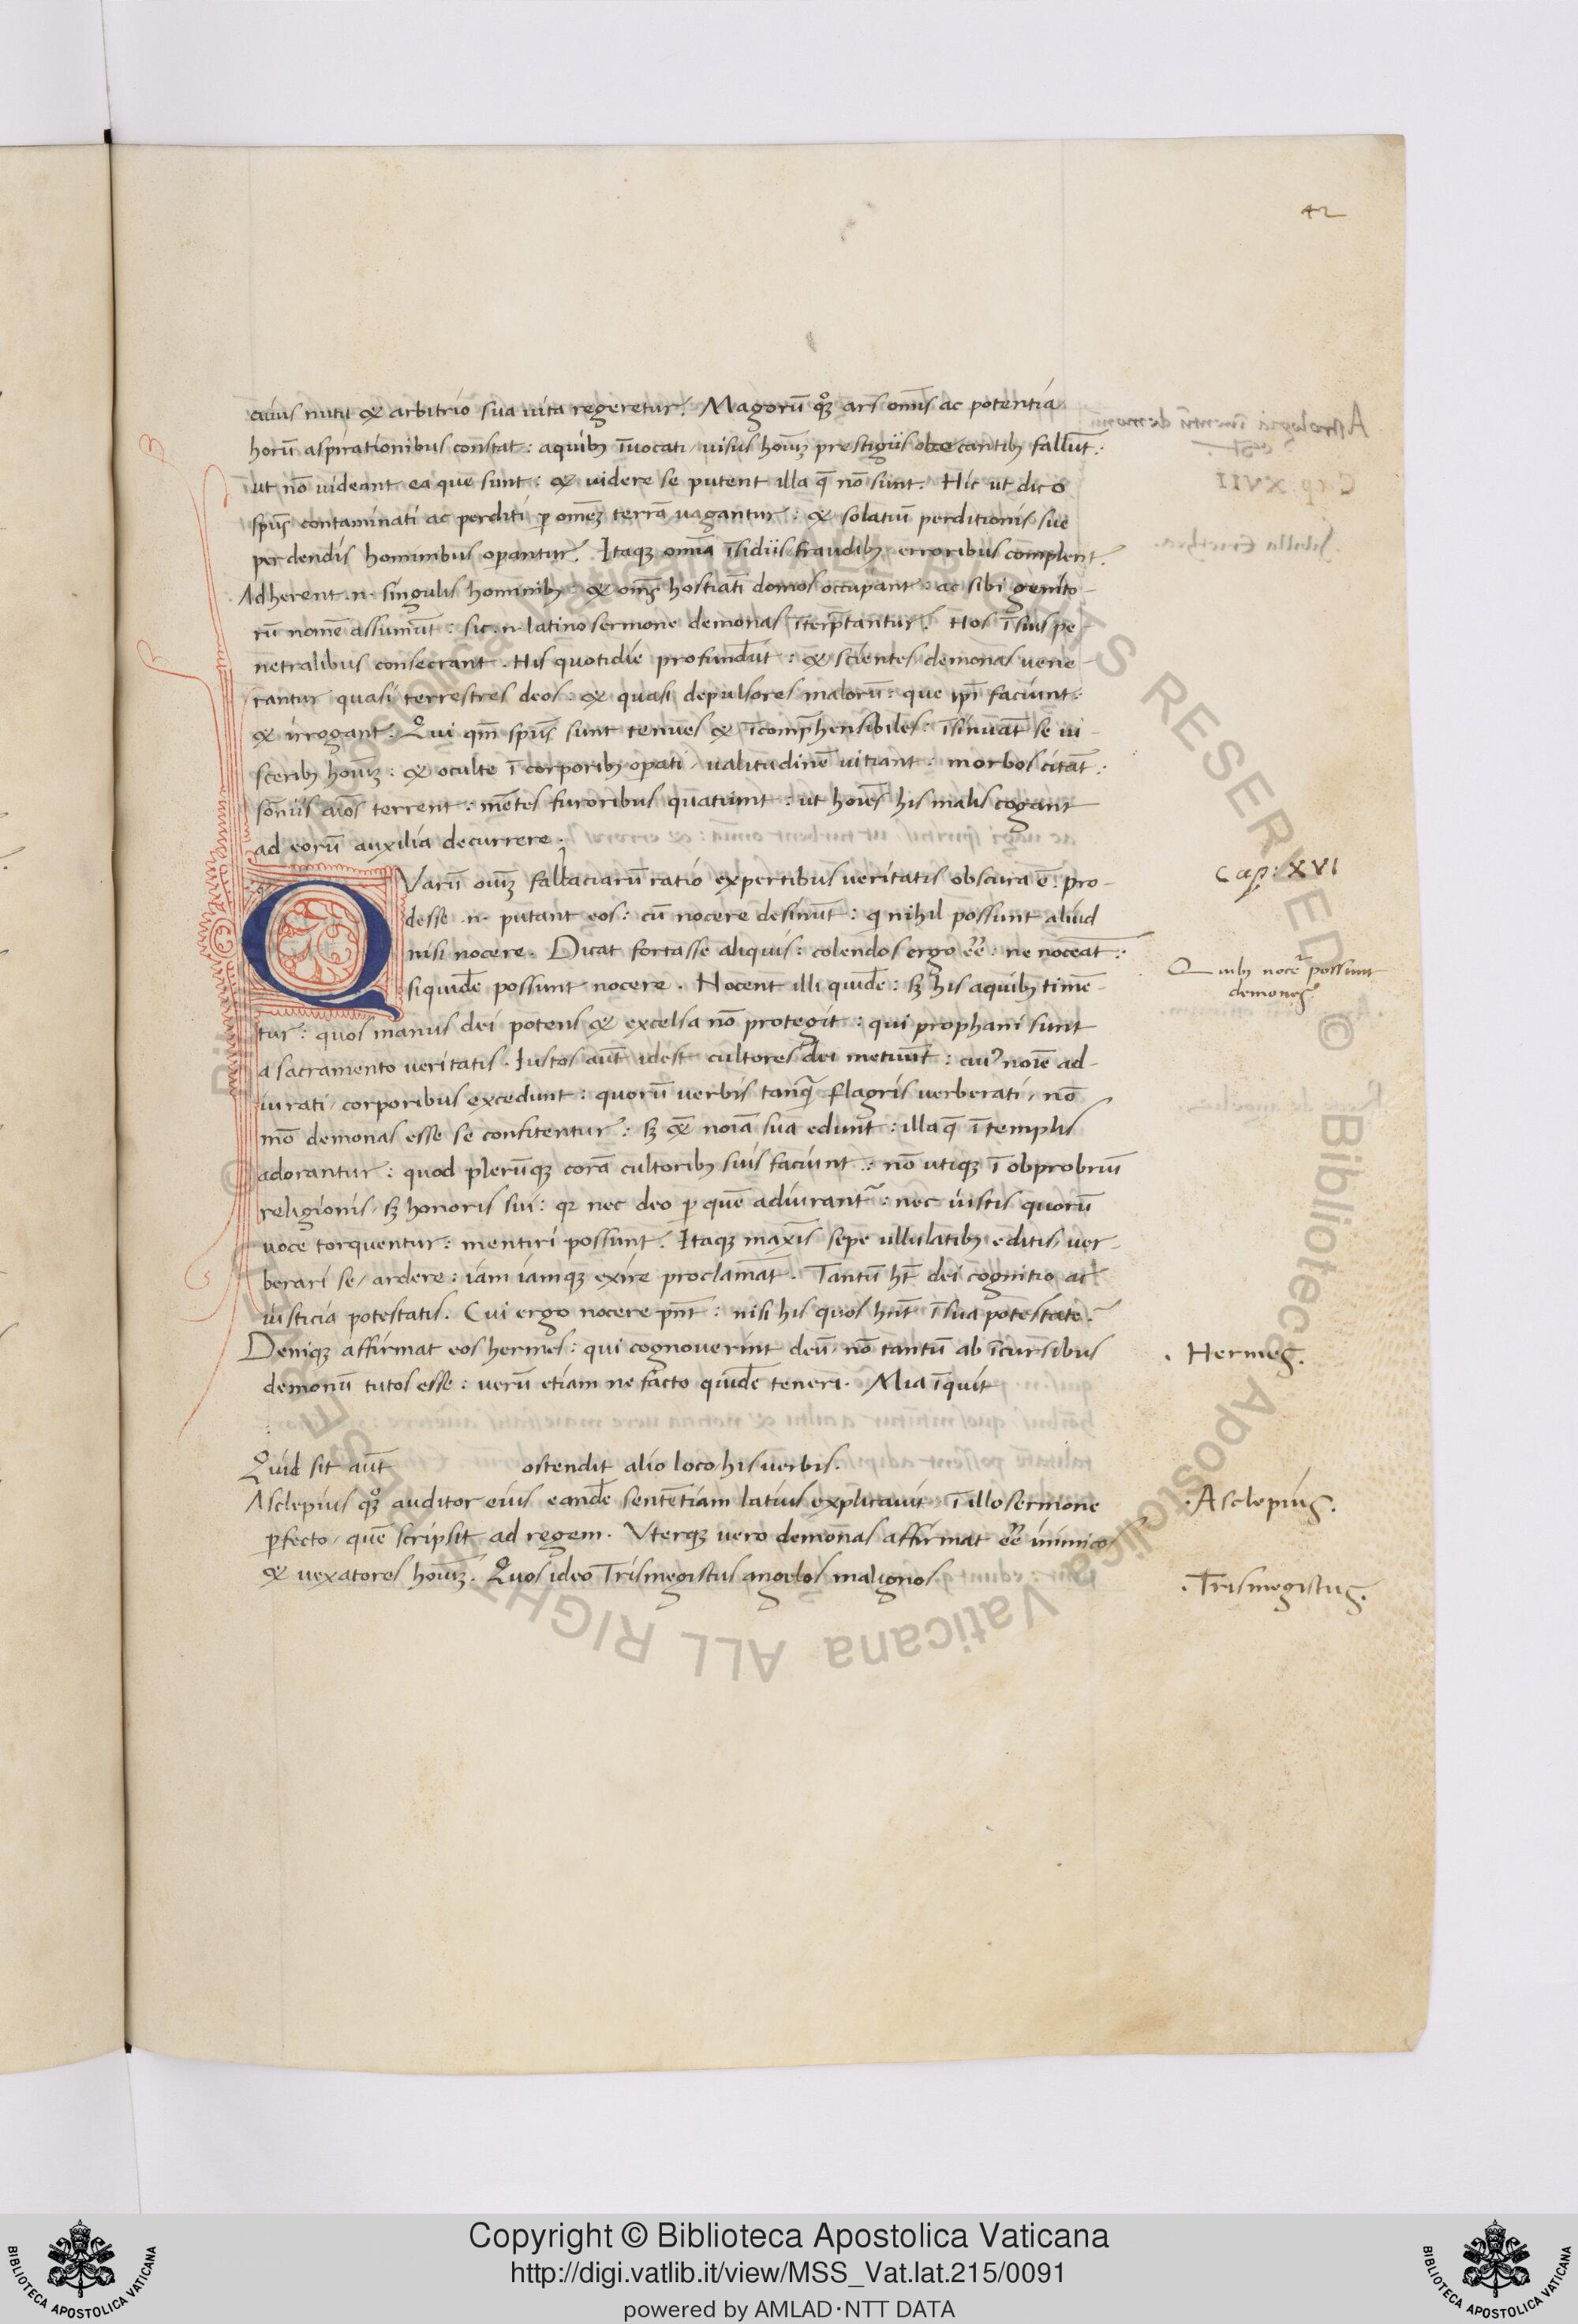 42
cuius nutu & arbitrio sua uita regeretur. Magorū qꝫ ars om̄is ac potentia
horū aspirationibus constat: aquibꝫ īuocati / uisus hoīuꝫ prestigiis obcecantibꝫ fallūt:
ut nō uideant ea que sunt: & uidere se putent illa q̄ nō sunt. Hic ut dico
sp̄us contaminati ac perditi ꝑ om̄eꝫ terrā uagantur: & solatiū perditionis sue
perdendis hominibus opantur. Itaqꝫ om̄ia īsidiis fraudibꝫ erroribus complent.
Adherent .n. singulis hominibꝫ: & om̄s hostiatī domos occupant: ac sibi genito-
rū nomē assumūt: sic .n. latino sermone demonas īterp̄tantur. Hos ī suis pe
netralibus consecrant. His quotidie profundūt: & scientes demonas uene-
rantur quasi terrestres deos: & quasi depulsores malorū: que ip̄i faciunt:
& irrogant. Qui qm̄ sp̄us sunt tenues & īcomp̄hensibiles: īsinuāt se ui-
sceribꝫ hoīuꝫ: & oculte ī corporibꝫ opati / ualitudinē uitiant: morbos citāt:
sōniis aīos terrent: mētes furoribus quatiunt: ut hoīes his malis cogant
ad eorū auxilia decurrere.
QVarū oīuꝫ fallaciarū ratio expertibus ueritatis obscura ē: pro-
Cap: XVI
desse .n. putant eos: cū nocere desinūt: q nihil possunt aliud
nisi nocere. Dicat fortasse aliquis: colendos ergo ēē: ne noceāt:
Quibꝫ nocē possunt
demones
siquidē possunt nocere. Nocent illi quidē: sꝫ his aquibꝫ timē-
tur: quos manus dei potens & excelsa nō protegit: qui prophani sunt
a sacramento ueritatis. Iustos aūt idest cultores dei metuūt: cuiꝰ noīe ad-
iurati / corporibus excedunt: quorū uerbis tanqꝫ flagris uerberati / nō
mō demonas esse se confitentur: sꝫ & noīa sua edunt: illa q̄ ī templis
adorantur: quod plerūqꝫ corā cultoribꝫ suis faciunt: nō utiqꝫ ī obprobriū
religionis / sꝫ honoris sui: qꝛ nec deo ꝑ quē adiurantr̄: nec iustis quorū
uoce torquentur: mentiri possunt. Itaqꝫ maxīs sepe ullulatibꝫ editis / uer-
berari se / ardere: iam iamqꝫ exire proclamāt. Tantū hт̄ dei cognitio ac
iusticia potestatis. Cui ergo nocere pn̄t: nisi his quos hn̄t ī sua potestate.
Deniqꝫ affirmat eos hermes: qui cognouerint deū / nō tantū ab īcursibus
. Hermes.
demonū tutos esse: uerū etiam ne facto quidē teneri. Mia īquit
Quid sit aūt ostendit alio loco his uerbis.
Asclepius qꝫ auditor eius eandē sentētiam latius explicauit ī illo sermone
.Asclepius.
ꝑfecto / quē scripsit ad regem. Vterqꝫ uero demonas affirmat ēē inimicos
& uexatores hoīuꝫ. Quos ideo Trismegistus angelos malignos
.Trismegistus.
© Biblioteca Apostolica Vaticana ALL RIGHTS RESERVED
Copyright © Biblioteca Apostolica Vaticana
http://digi.vatlib.it/view/MSS_Vat.lat.215/0091
powered by AMLAD·NTT DATA
BIBLIOTECA APOSTOLICA VATICANA
BIBLIOTECA APOSTOLICA VATICANA